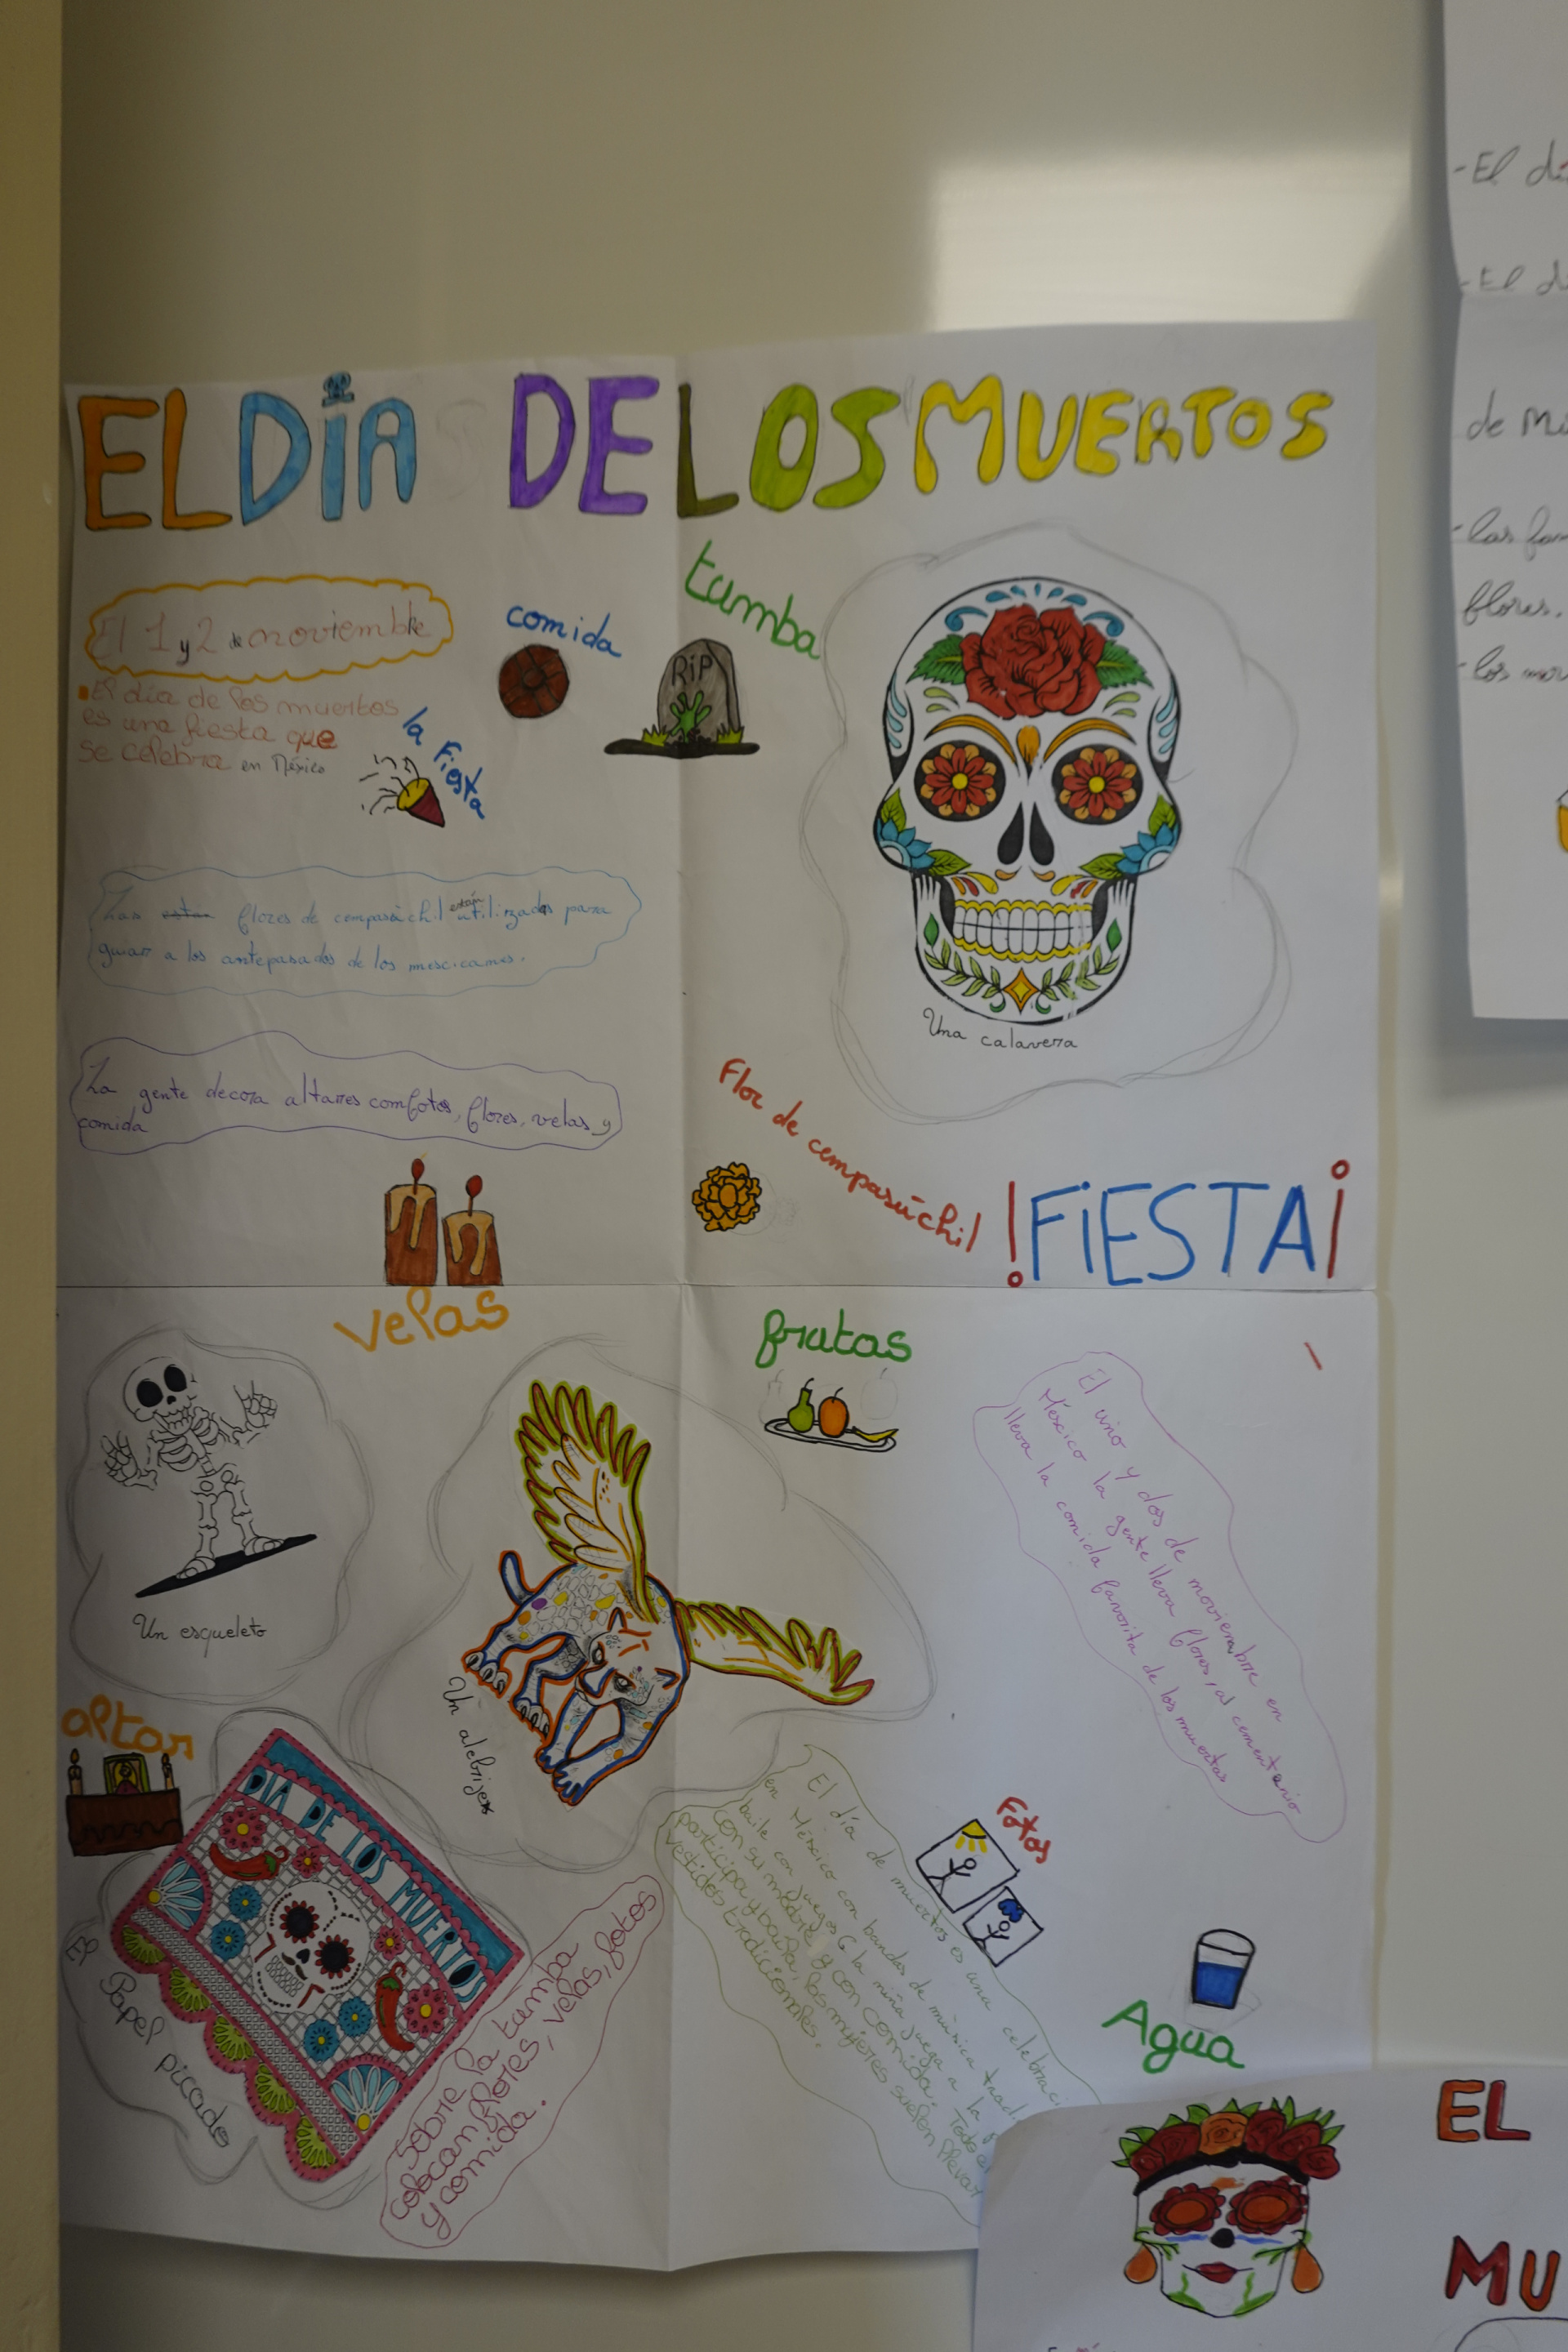 EL DÍA DE LOS MUERTOS
El 1 y 2 de noviembre
El día de los muertos
es una fiesta que
se celebra en México
la Fiesta
comida
tumba
RiP
Una calavera
Las flores de compasúchil están utilizadas para
guiar a los antepasados de los mescicanos.
La gente decora altarres com fotos, flores, velas y
comida
Flor de cempasúchil
!FiESTA¡
velas
frutas
Un esqueleto
Un alebrijes
El uno y dos de noviembre en
México la gente lleva flores, al cementario
lleva la comida favorita de los muertos
altar
DIA DE LOS MUERTOS
Papel picado
Sobre la tumba
colocan flores, velas, fotos
y comida.
El día de muertos es una celebraci
en México con bandas de música tradi
baile con juegos la niña juega a la
con su madre y con comida. Todo
participa y baila, las mujeres suelen llevar
vestidos tradicionales.
Fotos
Agua
-El dí
-El di
de Mé
-las fam
flores.
-los mue
EL
MU